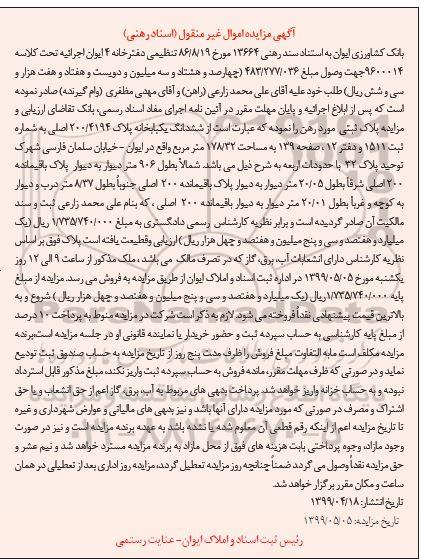 آگهی مزایده اموال غیر منقول (اسناد رهنی)
بانک کشاورزی ایوان به استناد سند رهنی ۱۳۶۶۴ مورخ ۸۶/۸/۱۹ تنظیمی دفترخانه ۴ ایوان اجرائیه تحت کلاسه
۹۶۰۰۰۱۴ جهت وصول مبلغ ۴۸۳/۲۷۷/۰۳۶ (چهارصد و هشتاد و سه میلیون و دویست و هفتاد و هفت هزار و
سی و شش ریال) طلب خود علیه آقای علی محمد زارعی (راهن) و آقای مهدی مظفری (وام گیرنده) صادر نموده
است که پس از ابلاغ اجرائیه و پایان مهلت مقرر در آئین نامه اجرای مفاد اسناد رسمی، بانک تقاضای ارزیابی و
مزایده پلاک ثبتی مورد رهن را نموده که عبارت است از ششدانگ یکبابخانه پلاک ۲۰۰/۴۱۹۴ اصلی به شماره
ثبت ۱۵۱۱ و دفتر ۱۲ ، صفحه ۱۳۹ به مساحت ۱۷۸/۳۲ متر مربع واقع در ایوان - خیابان سلمان فارسی شهرک
توحید پلاک ۳۲ با حدودات اربعه به شرح ذیل می باشد. شمالاً بطول ۹۰۶ متر دیوار به دیوار پلاک باقیمانده
۲۰۰ اصلی شرقاً بطول ۲۰/۰۵ متر دیوار به دیوار پلاک باقیمانده ۲۰۰ اصلی جنوباً بطول ۸/۳۷ متر درب و دیوار
به کوچه و غرباً بطول ۲۰/۰۱ متر دیوار به دیوار باقیمانده ۲۰۰ اصلی ، که بنام علی محمد زارعی ثبت و سند
مالکیت آن صادر گردیده است و برابر نظریه کارشناس رسمی دادگستری به مبلغ ۱/۷۳۵/۷۴۰/۰۰۰ ریال (یک
میلیارد و هفتصد و سی و پنج میلیون و هفتصد و چهل هزار ریال) ارزیابی وقطعیت یافته است پلاک فوق بر اساس
نظریه کارشناس دارای انشعابات آب، برق، گاز که در تصرف مالک می باشد ، ملک مذکور از ساعت ۹ الی ۱۲ روز
یکشنبه مورخ ۱۳۹۹/۰۵/۰۵ در اداره ثبت اسناد و املاک ایوان از طریق مزایده به فروش می رسد. مزایده از مبلغ
پایه ۱/۷۳۵/۷۴۰/۰۰۰ ریال (یک میلیارد و هفتصد و سی و پنج میلیون و هفتصد و چهل هزار ریال ) شروع و به
بالاترین قیمت پیشنهادی نقداً فروخته می شود. لازم به ذکر است شرکت در مزایده منوط به پرداخت ۱۰ درصد
از مبلغ پایه کارشناسی به حساب سپرده ثبت و حضور خریدار یا نماینده قانونی او در جلسه مزایده است،برنده
مزایده مکلف است مابه التفاوت مبلغ فروش را ظرف مدت پنج روز از تاریخ مزایده به حساب صندوق ثبت تودیع
نماید و در صورتی که ظرف مهلت مقرر، مانده فروش به حساب سپرده ثبت واریز نکند، مبلغ مذکور قابل استرداد
نبوده و به حساب خزانه واریز خواهد شد. پرداخت بدهی های مربوط به آب، برق، گاز اعم از حق انشعاب و یا حق
اشتراک و مصرف در صورتی که مورد مزایده دارای آنها باشد و نیز بدهی های مالیاتی و عوارض شهرداری و غیره
تا تاریخ مزایده اعم از اینکه رقم قطعی آن معلوم شده یا نشده باشد به عهده برنده مزایده است و نیز در صورت
وجود مازاد، وجوه پرداختی بابت هزینه های فوق از محل مازاد به برنده مزایده مسترد خواهد شد و نیم عشر و
حق مزایده نقداً وصول می گردد ضمناً چنانچه روز مزایده تعطیل گردد، مزایده روز اداری بعد از تعطیلی در همان
ساعت و مکان مقرر برگزار خواهد شد.
تاریخ انتشار: ۱۳۹۹/۰۴/۱۸
تاریخ مزایده: ۱۳۹۹/۰۵/۰۵
رئیس ثبت اسناد و املاک ایوان- عنایت رستمی